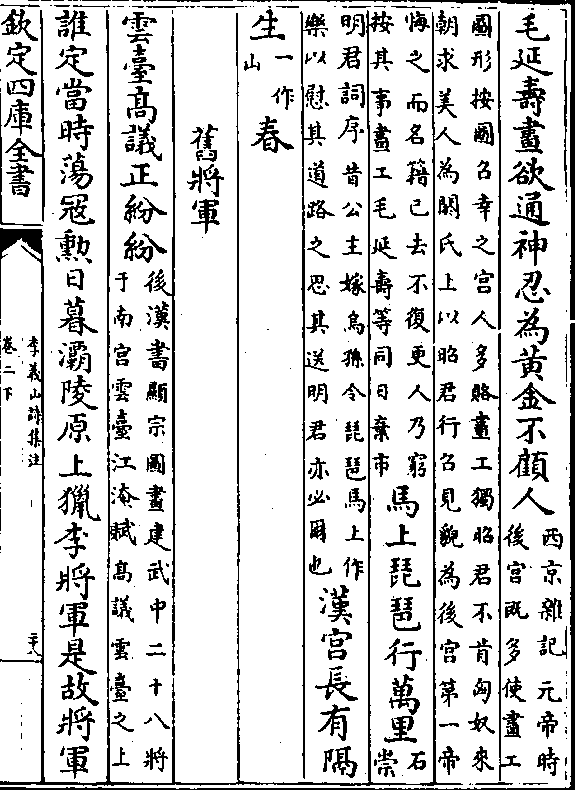 毛延壽畫欲通神忍為黃金不顧人西京雜記元帝時
後宮既多使畫工
圖形按圖召幸之宮人多賂畫工獨昭君不肯匈奴來
朝求美人為閼氏上以昭君行召見貌為後宮第一帝
悔之而名籍已去不復更人乃窮
按其事畫工毛延壽等同日棄市馬上琵琶行萬里石
崇
明君詞序昔公主嫁烏孫令琵琶馬上作
樂以慰其道路之思其送明君亦必爾也漢宮長有隔
生一作
山春
舊將軍
雲臺高議正紛紛後漢書顯宗圖畫建武中二十八將
于南宮雲臺江淹賦高議雲臺之上
誰定當時蕩寇勲日暮灞陵原上獵李將軍是故將軍
欽定四庫全書
李義山詩集注
卷二下